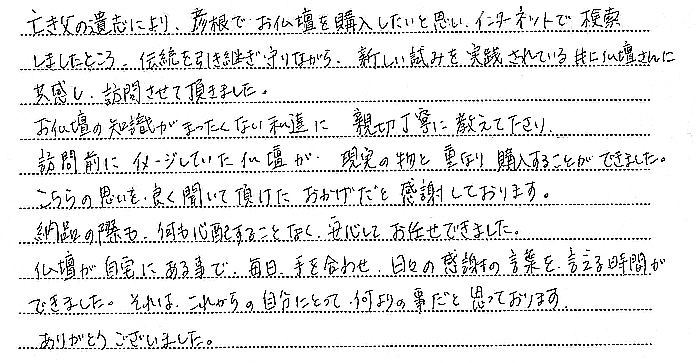 亡き父の遺志により、彦根でお仏壇を購入したいと思い、インターネットで検索
しましたところ、伝統を引き継ぎ守りながら、新しい試みを実践されている井上仏壇さんに
共感し、訪問させて頂きました。
お仏壇の知識がまったくない私達に 親切丁寧に教えて下さり、
訪問前にイメージしていた仏壇が、現実の物と重なり購入することができました。
こちらの思いを良く聞いて頂けたおかげだと感謝しております。
納品の際も、何も心配することなく、安心してお任せできました。
仏壇が自宅にある事で、毎日、手を合わせ、日々の感謝の言葉を言える時間が
できました。それは、これからの自分にとって何よりの事だと思っております。
ありがとうございました。